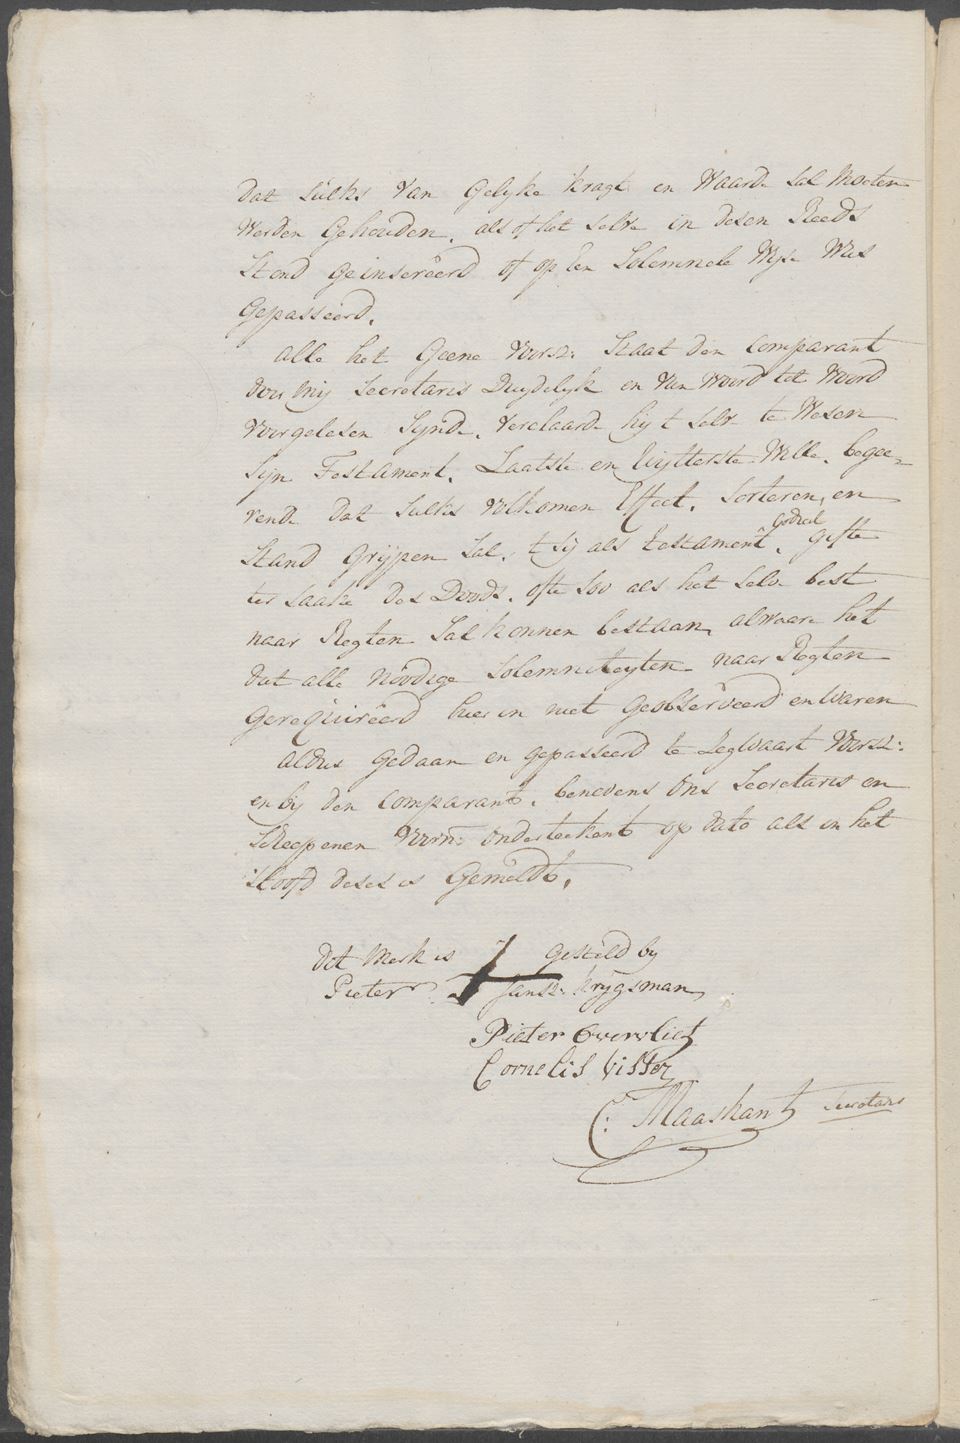 dat sulks van Gelyke kragt en Waarde sal Moeten
Werden Gehouden, als of het selve in desen Reeds
Stond geinsereerd of op een Solemneele Wyse Was
Gepasseerd.
alle het Geene voorsz: Staat den Comparant
door Mij Secretaris Duydelyk en van Woord tot Woord
voorgelesen Synde, verclaarde hij t selve te Wesen
Syn Testament, Laatste en Uytterste Wille, begee-
rende dat sulks volkomen Effect, sorteren, en
Stand Grypen sal, t sij als testament, Codicil, gifte
ter saake des Doods, ofte soo als het selve best
naar Regten Sal konnen bestaan, alwaare het
dat alle noodige Solemniteyten naar Regten
Gerequireerd hier in niet Geobserveerd en waren
aldus Gedaan en gepasseerd te Zegwaart voorsz:
en bij den Comparant, benevens Ons Secretaris en
Scheepenen voorn: onderteekent op dato als in het
Hoofd deses is Gemeldt.
Dit Merk is gesteld by
Pieter Jansz: Krygsman
Pieter Overvliet
Cornelis Visser
C: Maaskant Secretaris